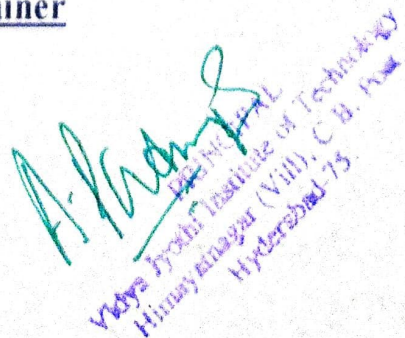 ainer
PRINCIPAL
Vidya Jyothi Institute of Technology
Himayatnagar (Vill), C.B. Post
Hyderabad-75.